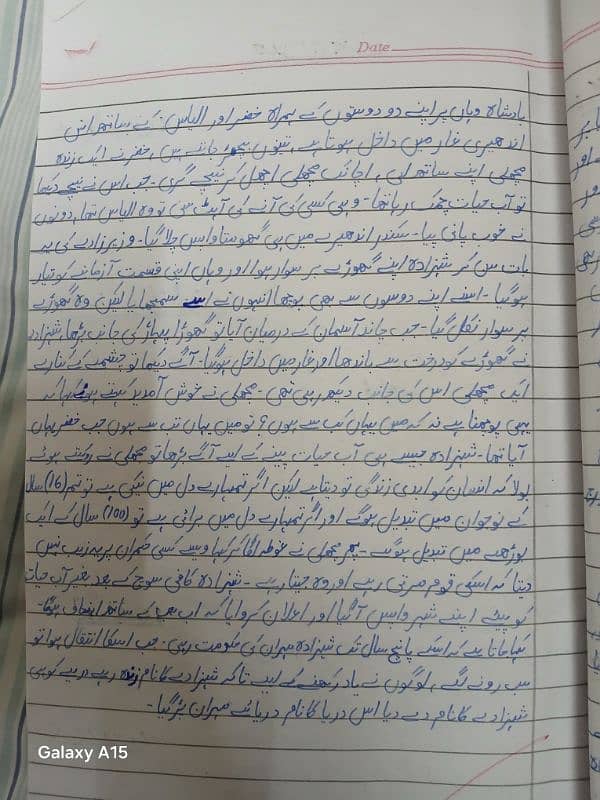 Date
بادشاہ وہاں پر اپنے دو دوستوں کے ہمراہ خضر اور الیاس کے ساتھ اس
اندھیری غار میں داخل ہوتا ہے، تینوں بچھڑ جاتے ہیں، خضر نے ایک زندہ
مچھلی اپنے ساتھ لی، اچانک مچھلی اچھل کر نیچے گری۔ جب اس نے نیچے دیکھا
تو آب حیات چمک رہا تھا۔ وہی کسی کی آنے کی آہٹ سنی تو وہ الیاس تھا، دونوں
نے خوب پانی پیا۔ سکندر اندھیرے میں ہی گھومتا واپس چلا گیا۔ وزیرزادے کی یہ
بات سن کر شہزادہ اپنے گھوڑے پر سوار ہوا اور وہاں اپنی قسمت آزمانے کو تیار
ہوگیا۔ اسنے اپنے دوسوں سے بھی پوچھا انہوں نے اسے سمجھایا لیکن وہ گھوڑے
پر سوار نکل گیا۔ جب چاند آسمان کے درمیان آیا تو گھوڑا پہاڑ کی جانب بڑھا، شہزادہ
نے گھوڑے کو درخت سے باندھا اور غار میں داخل ہوگیا۔ آگے دیکھا تو چشمے کے کنارے
ایک مچھلی اس کی جانب دیکھ رہی تھی۔ مچھلی نے خوش آمدید کہتے ہوئے کہا کہ
یہی پوچھنا ہے نہ کہ میں یہاں کب سے ہوں؟ تو میں یہاں تب سے ہوں جب خضر یہاں
آیا تھا۔ شہزادہ جیسے ہی آب حیات پینے کے لیے آگے بڑھا تو مچھلی نے روکتے ہوئے
بولا کہ انسان کو ابدی زندگی تو دیتا ہے لیکن اگر تمہارے دل میں نیکی ہے تو تم (16) سال
کے نوجوان میں تبدیل ہوگے اور اگر تمہارے دل میں برائی ہے تو (100) سال کے ایک
بوڑھے میں تبدیل ہوگے۔ پھر مچھلی نے غوطہ لگا کر کہا ویسے کسی حکمران پر یہ زیب نہیں
دیتا کہ اسکی قوم مرتی رہے اور وہ جیتا رہے۔ شہزادہ کافی سوچ کے بعد بغیر آب حیات
کو پیئے اپنے شہر واپس آگیا اور اعلان کروایا کہ اب سب کے ساتھ انصاف ہوگا۔
کہا جاتا ہے کہ اسکے پانچ سال تک شہزادہ مہران کی حکومت رہی۔ جب اسکا انتقال ہوا تو
سب رونے لگے، لوگوں نے یاد رکھنے کے لیے تاکہ شہزادے کا نام زندہ رہے دریے کو ہی
شہزادے کا نام دے دیا اس دریا کا نام دریائے مہران پڑ گیا۔
Galaxy A15